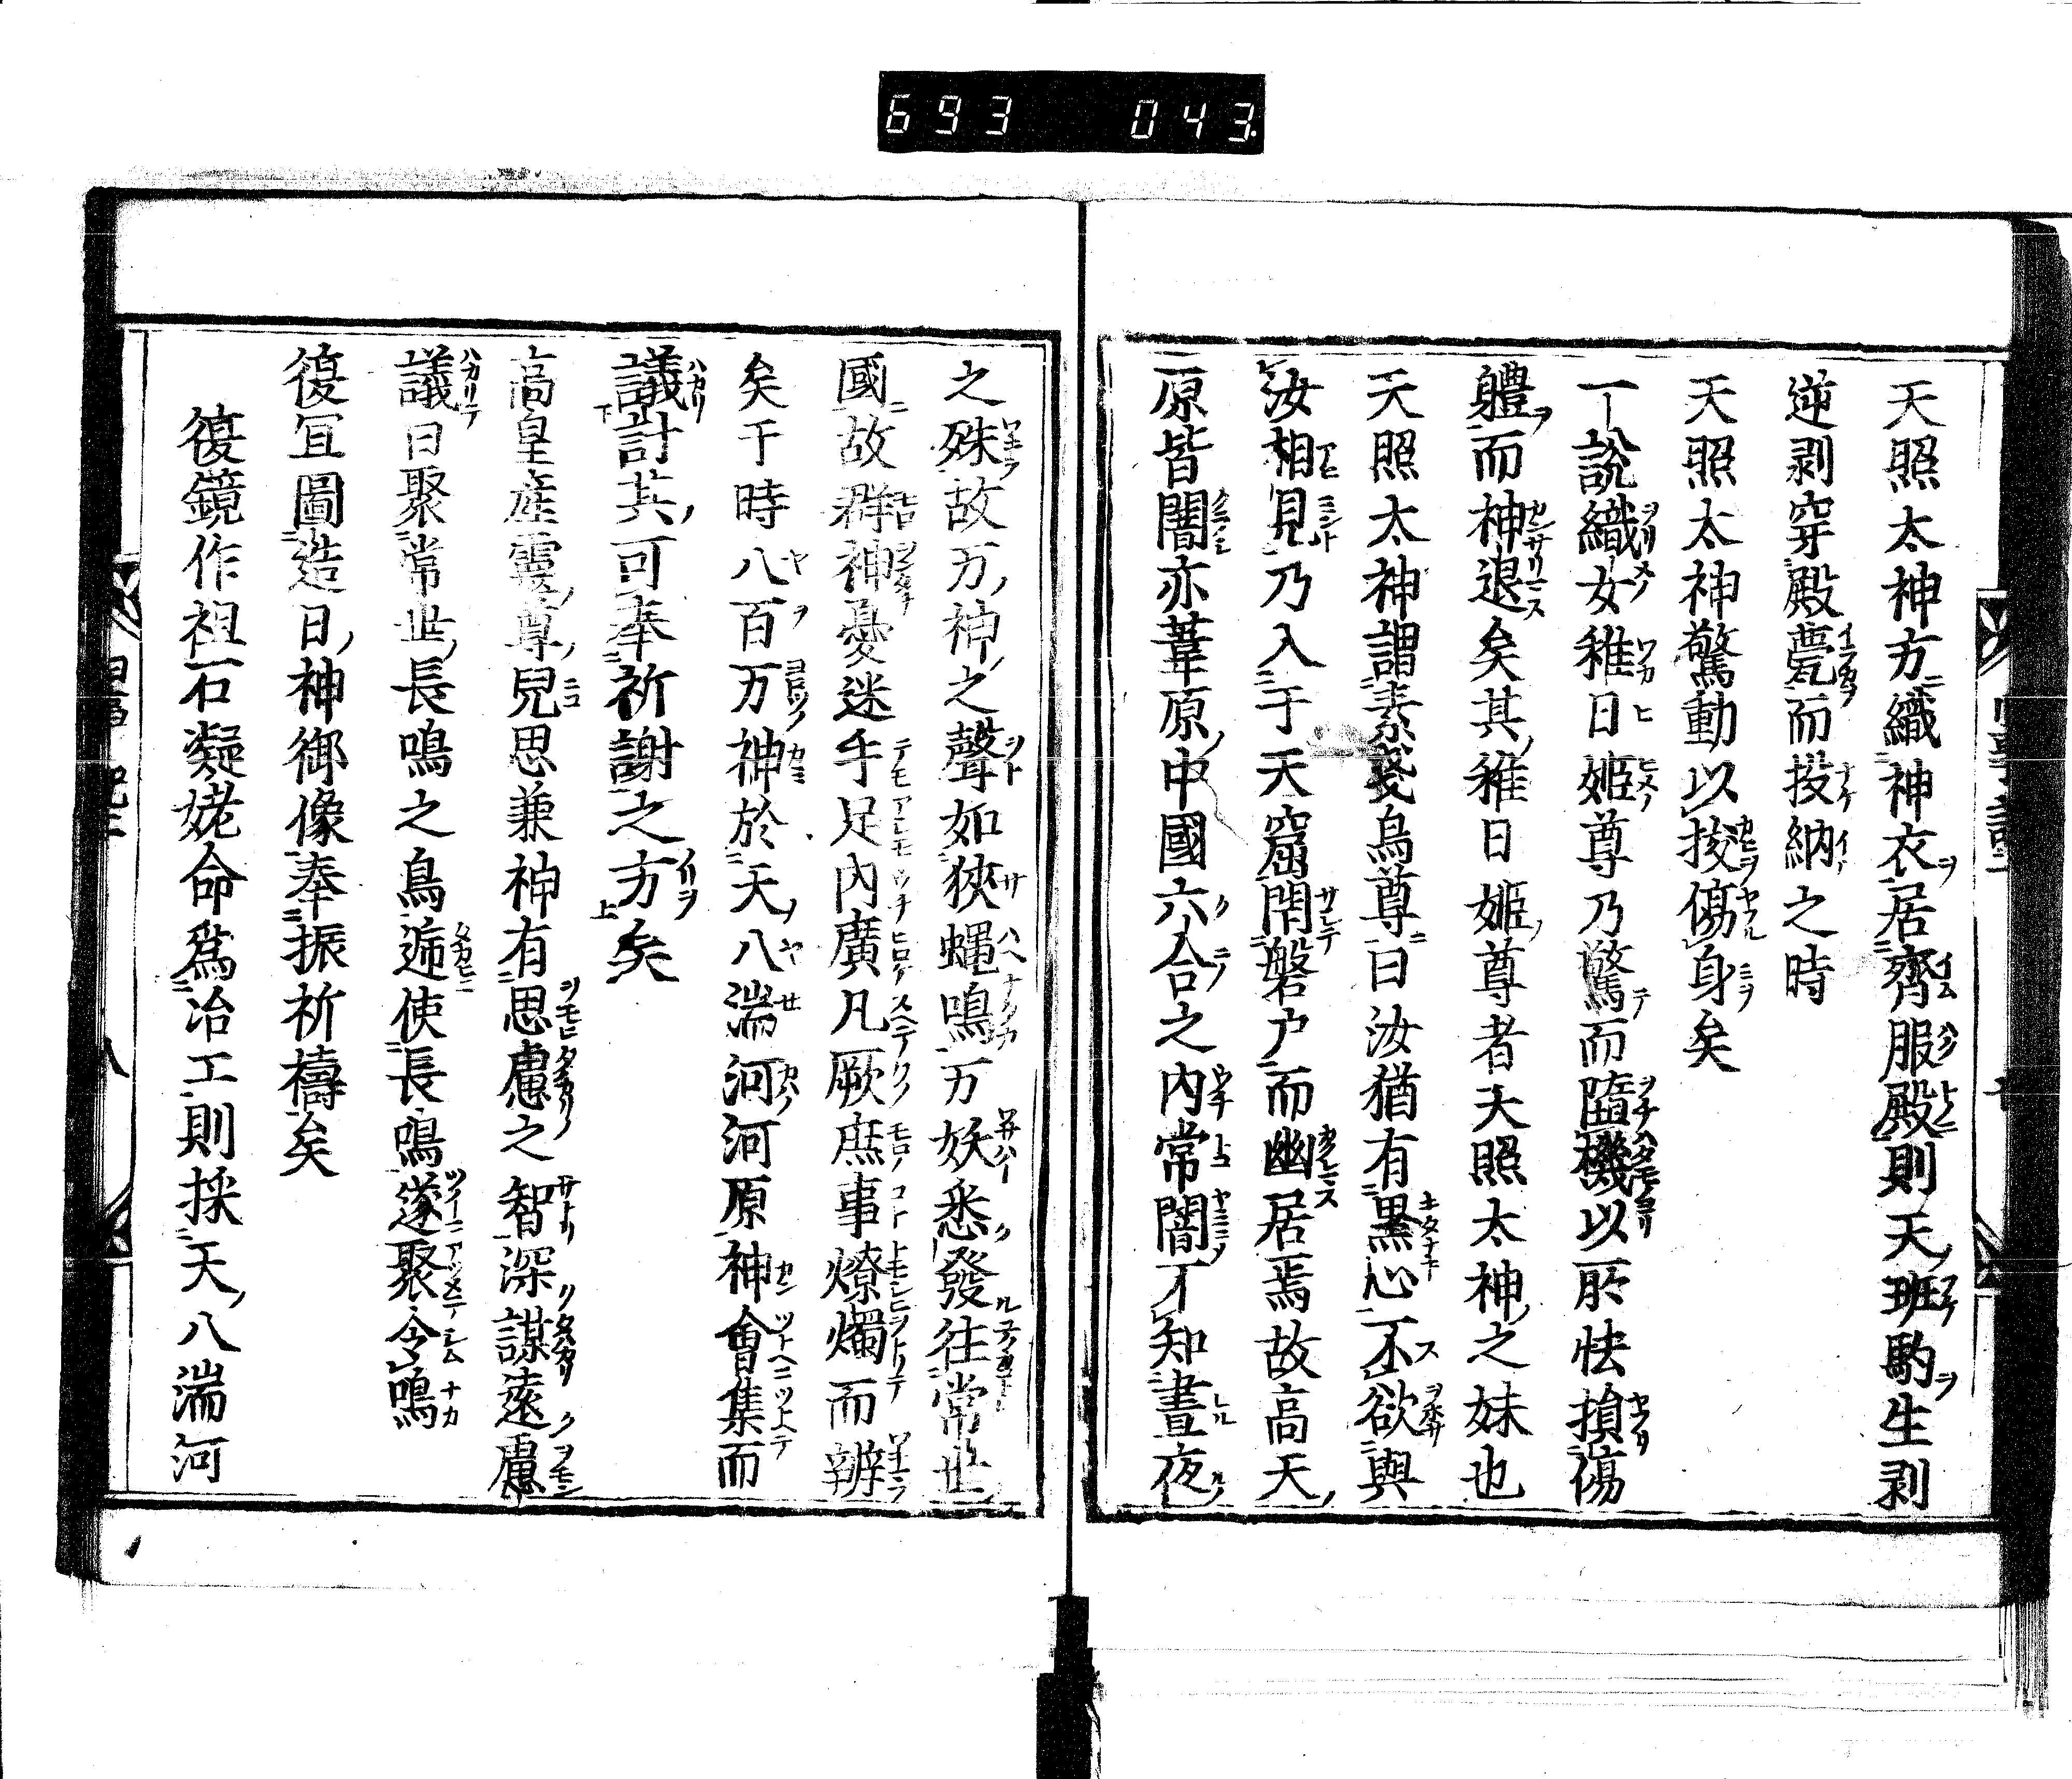 693 043
天照太神方織神衣居齊服殿則天班駒生剥
逆剥穿殿甍而投納之時
天照太神驚動以梭傷身矣
一說織女稚日姬尊乃驚而墮機以所恠損傷
軆而神退矣其稚日姬尊者天照太神之妹也
天照太神謂素戔烏尊曰汝猶有黑心不欲與
汝相見乃入于天窟閇磐户而幽居焉故高天
原皆闇亦葦原中國六合之內常闇不知晝夜
之殊故万神之聲如狹蠅鳴万妖悉發往常世
國故群神憂迷手足內廣凡厥庶事燎燭而辨
矣于時八百万神於天八湍河河原神會集而
議計其可奉祈謝之方矣
高皇產靈尊兒思兼神有思慮之智深謀遠慮
議曰聚常世長鳴之鳥遞使長鳴遂聚令鳴
復冝圖造日神御像奉振祈禱矣
復鏡作祖石凝姥命爲冶工則採天八湍河